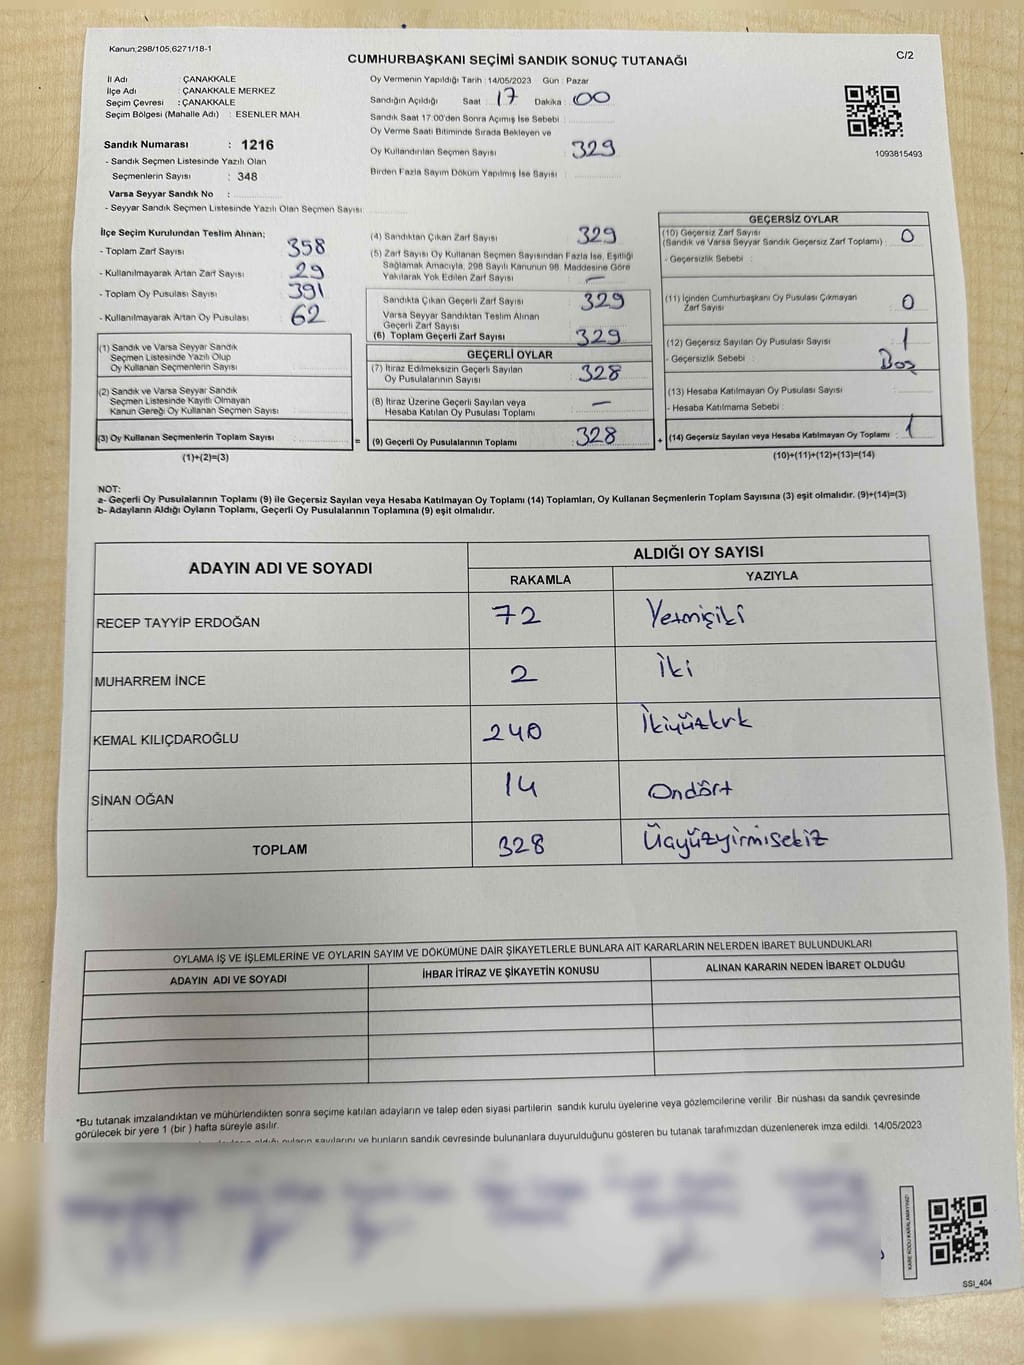 Kanun,298/105,6271/18-1
CUMHURBAŞKANI SEÇİMİ SANDIK SONUÇ TUTANAĞI
C/2
İl Adı : ÇANAKKALE
İlçe Adı : ÇANAKKALE MERKEZ
Seçim Çevresi : ÇANAKKALE
Seçim Bölgesi (Mahalle Adı) : ESENLER MAH.
Sandık Numarası : 1216
- Sandık Seçmen Listesinde Yazılı Olan
Seçmenlerin Sayısı : 348
Varsa Seyyar Sandık No :
- Seyyar Sandık Seçmen Listesinde Yazılı Olan Seçmen Sayısı:
Oy Vermenin Yapıldığı Tarih :14/05/2023 Gün : Pazar
Sandığın Açıldığı Saat : 17 Dakika : 00
Sandık Saat 17:00'den Sonra Açımış İse Sebebi :
Oy Verme Saati Bitiminde Sırada Bekleyen ve
Oy Kullandırılan Seçmen Sayısı : 329
Birden Fazla Sayım Döküm Yapılmış İse Sayısı :
1093815493
İlçe Seçim Kurulundan Teslim Alınan;
- Toplam Zarf Sayısı : 358
- Kullanılmayarak Artan Zarf Sayısı : 29
- Toplam Oy Pusulası Sayısı : 391
- Kullanılmayarak Artan Oy Pusulası : 62
(1) Sandık ve Varsa Seyyar Sandık
Seçmen Listesinde Yazılı Olup
Oy Kullanan Seçmenlerin Sayısı :
(2) Sandık ve Varsa Seyyar Sandık
Seçmen Listesinde Kayıtlı Olmayan
Kanun Gereği Oy Kullanan Seçmen Sayısı :
(3) Oy Kullanan Seçmenlerin Toplam Sayısı :
(1)+(2)=(3)
=
(4) Sandıktan Çıkan Zarf Sayısı : 329
(5) Zarf Sayısı Oy Kullanan Seçmen Sayısından Fazla İse, Eşitliği
Sağlamak Amacıyla, 298 Sayılı Kanunun 98. Maddesine Göre
Yakılarak Yok Edilen Zarf Sayısı : —
Sandıkta Çıkan Geçerli Zarf Sayısı : 329
Varsa Seyyar Sandıktan Teslim Alınan
Geçerli Zarf Sayısı :
(6) Toplam Geçerli Zarf Sayısı : 329
GEÇERLİ OYLAR
(7) İtiraz Edilmeksizin Geçerli Sayılan
Oy Pusulalarının Sayısı : 328
(8) İtiraz Üzerine Geçerli Sayılan veya
Hesaba Katılan Oy Pusulası Toplamı : —
(9) Geçerli Oy Pusulalarının Toplamı : 328
+
GEÇERSİZ OYLAR
(10) Geçersiz Zarf Sayısı
(Sandık ve Varsa Seyyar Sandık Geçersiz Zarf Toplamı) : 0
- Geçersizlik Sebebi :
(11) İçinden Cumhurbaşkanı Oy Pusulası Çıkmayan
Zarf Sayısı : 0
(12) Geçersiz Sayılan Oy Pusulası Sayısı : 1
- Geçersizlik Sebebi : Boş
(13) Hesaba Katılmayan Oy Pusulası Sayısı :
- Hesaba Katılmama Sebebi :
(14) Geçersiz Sayılan veya Hesaba Katılmayan Oy Toplamı : 1
(10)+(11)+(12)+(13)=(14)
NOT:
a- Geçerli Oy Pusulalarının Toplamı (9) ile Geçersiz Sayılan veya Hesaba Katılmayan Oy Toplamı (14) Toplamları, Oy Kullanan Seçmenlerin Toplam Sayısına (3) eşit olmalıdır. (9)+(14)=(3)
b- Adayların Aldığı Oyların Toplamı, Geçerli Oy Pusulalarının Toplamına (9) eşit olmalıdır.
ADAYIN ADI VE SOYADI ALDIĞI OY SAYISI
RAKAMLA YAZIYLA
RECEP TAYYİP ERDOĞAN 72 Yetmişiki
MUHARREM İNCE 2 İki
KEMAL KILIÇDAROĞLU 240 İkiyüzkırk
SİNAN OĞAN 14 Ondört
TOPLAM 328 Üçyüzyirmisekiz
OYLAMA İŞ VE İŞLEMLERİNE VE OYLARIN SAYIM VE DÖKÜMÜNE DAİR ŞİKAYETLERLE BUNLARA AİT KARARLARIN NELERDEN İBARET BULUNDUKLARI
ADAYIN ADI VE SOYADI İHBAR İTİRAZ VE ŞİKAYETİN KONUSU ALINAN KARARIN NEDEN İBARET OLDUĞU
*Bu tutanak imzalandıktan ve mühürlendikten sonra seçime katılan adayların ve talep eden siyasi partilerin sandık kurulu üyelerine veya gözlemcilerine verilir .Bir nüshası da sandık çevresinde
görülecek bir yere 1 (bir ) hafta süreyle asılır.
aldığı oyların sayılarını ve bunların sandık çevresinde bulunanlara duyurulduğunu gösteren bu tutanak tarafımızdan düzenlenerek imza edildi. 14/05/2023
KARE KODU KARALAMAYINIZ!
SSI_404